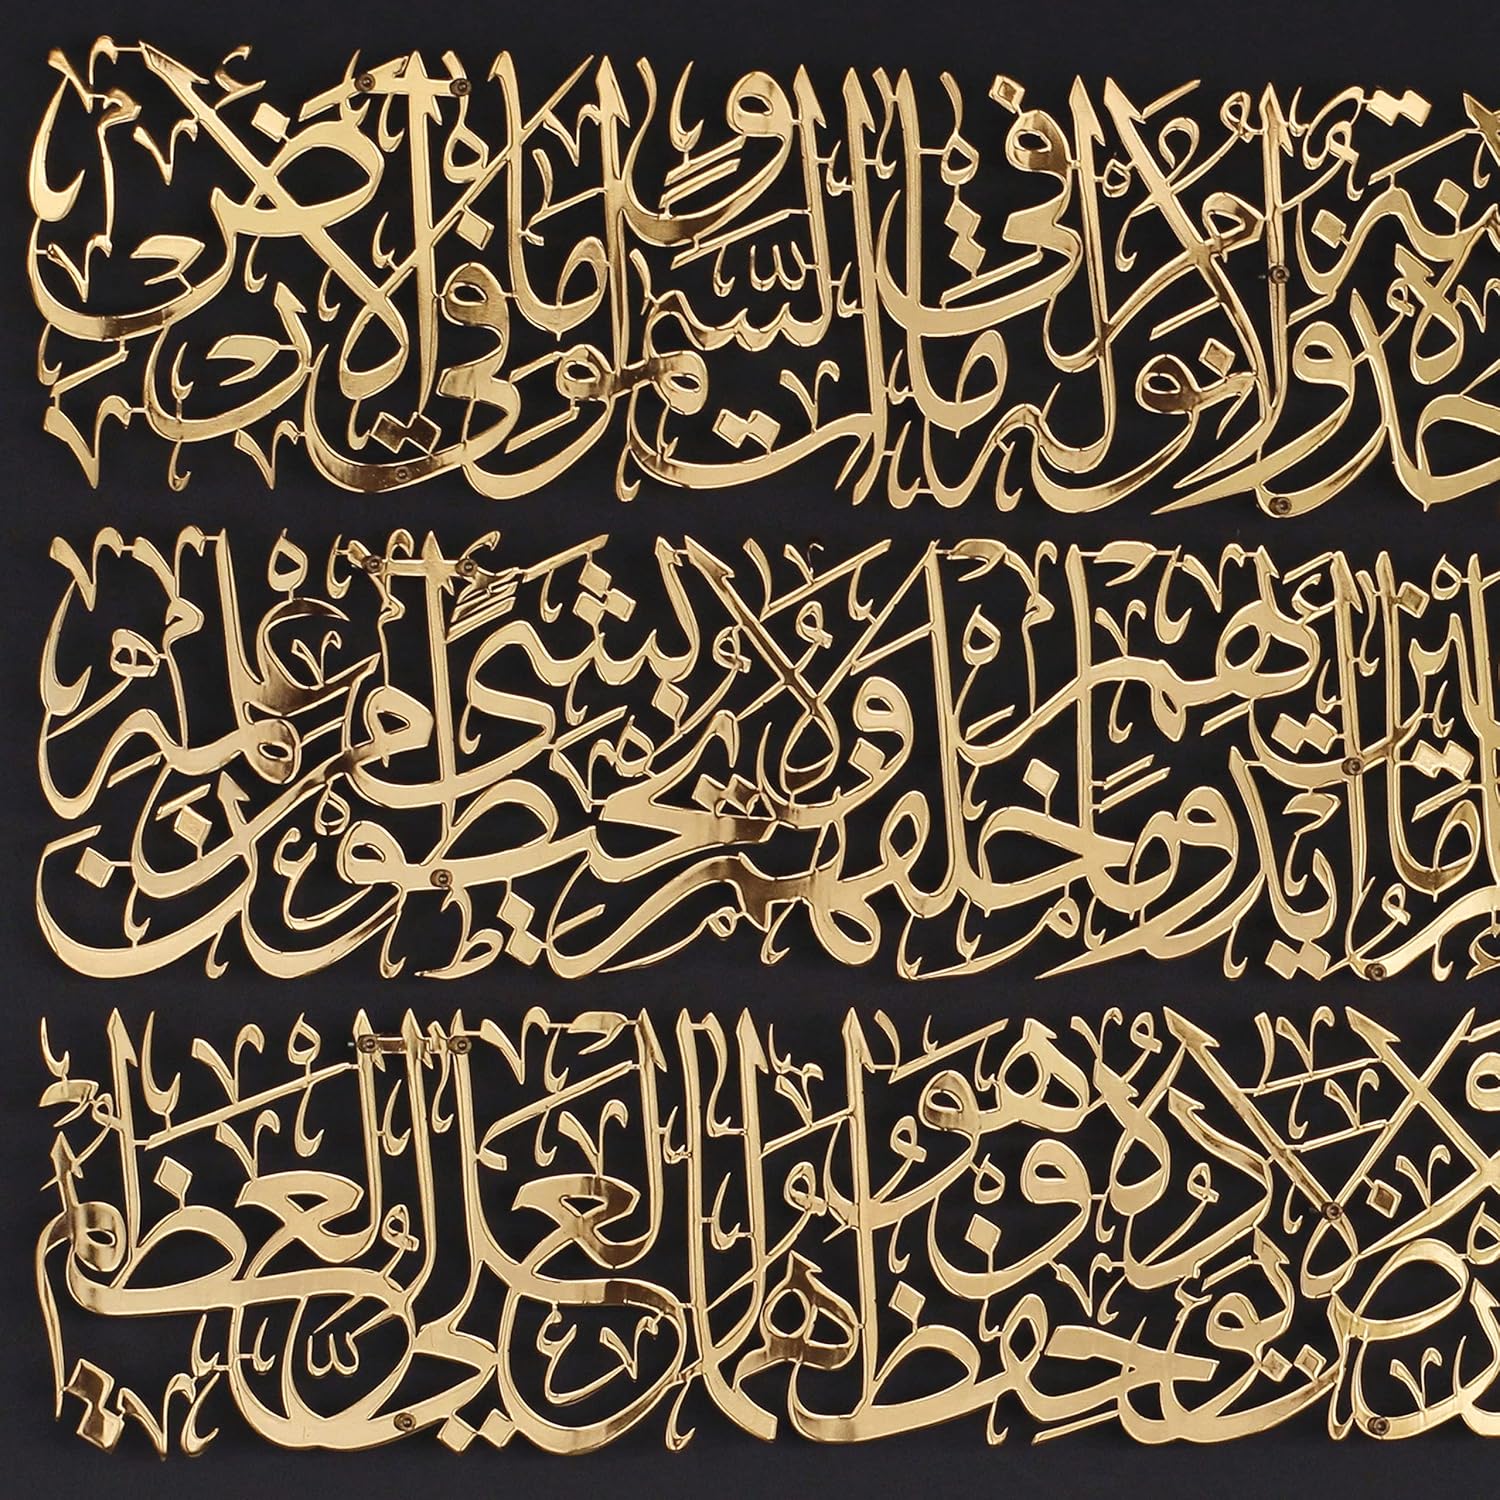 تأخذه سنة ولا نوم له ما في السموات وما في الأرض
أيديهم وما خلفهم ولا يحيطون بشيء من علمه
ولا يؤده حفظهما وهو العلي العظيم